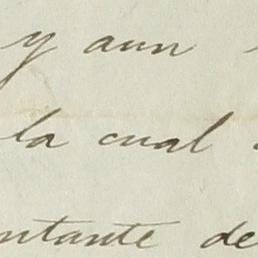 y aun
la cual
ntante de